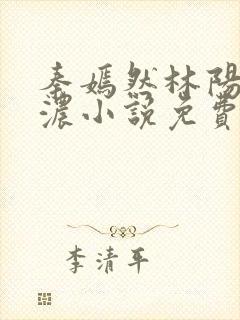 秦嫣然林陽
濃小說免費
李清平